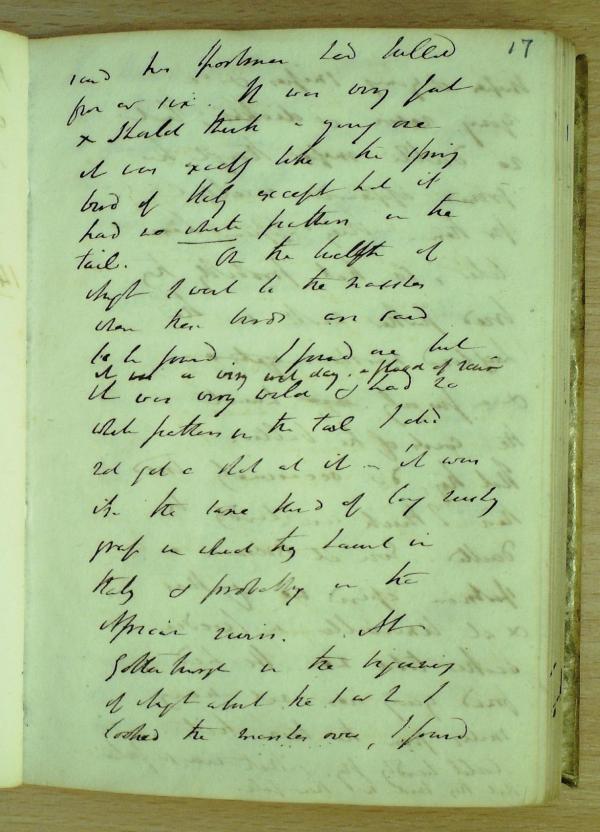 17
said his sportsman had killed
five or six. It was very fat
& I should think a young one
it was exactly like the spring
bird of Italy except that it
had no white feathers in the
tail. On the twelfth of
Augt I went to the marshes
where these birds are said
to be found. I found one but
it was a very wet day. a flood of rain
it was very wild & had no
white feathers in the tail I did
not get a shot at it - it was
in the same kind of long rushy
grass in which they haunt in
Italy & probably in the
African ruins. At
Gottenburgh in the beginning
of Augt about the 1 or 2 I
looked the marshes over, I found